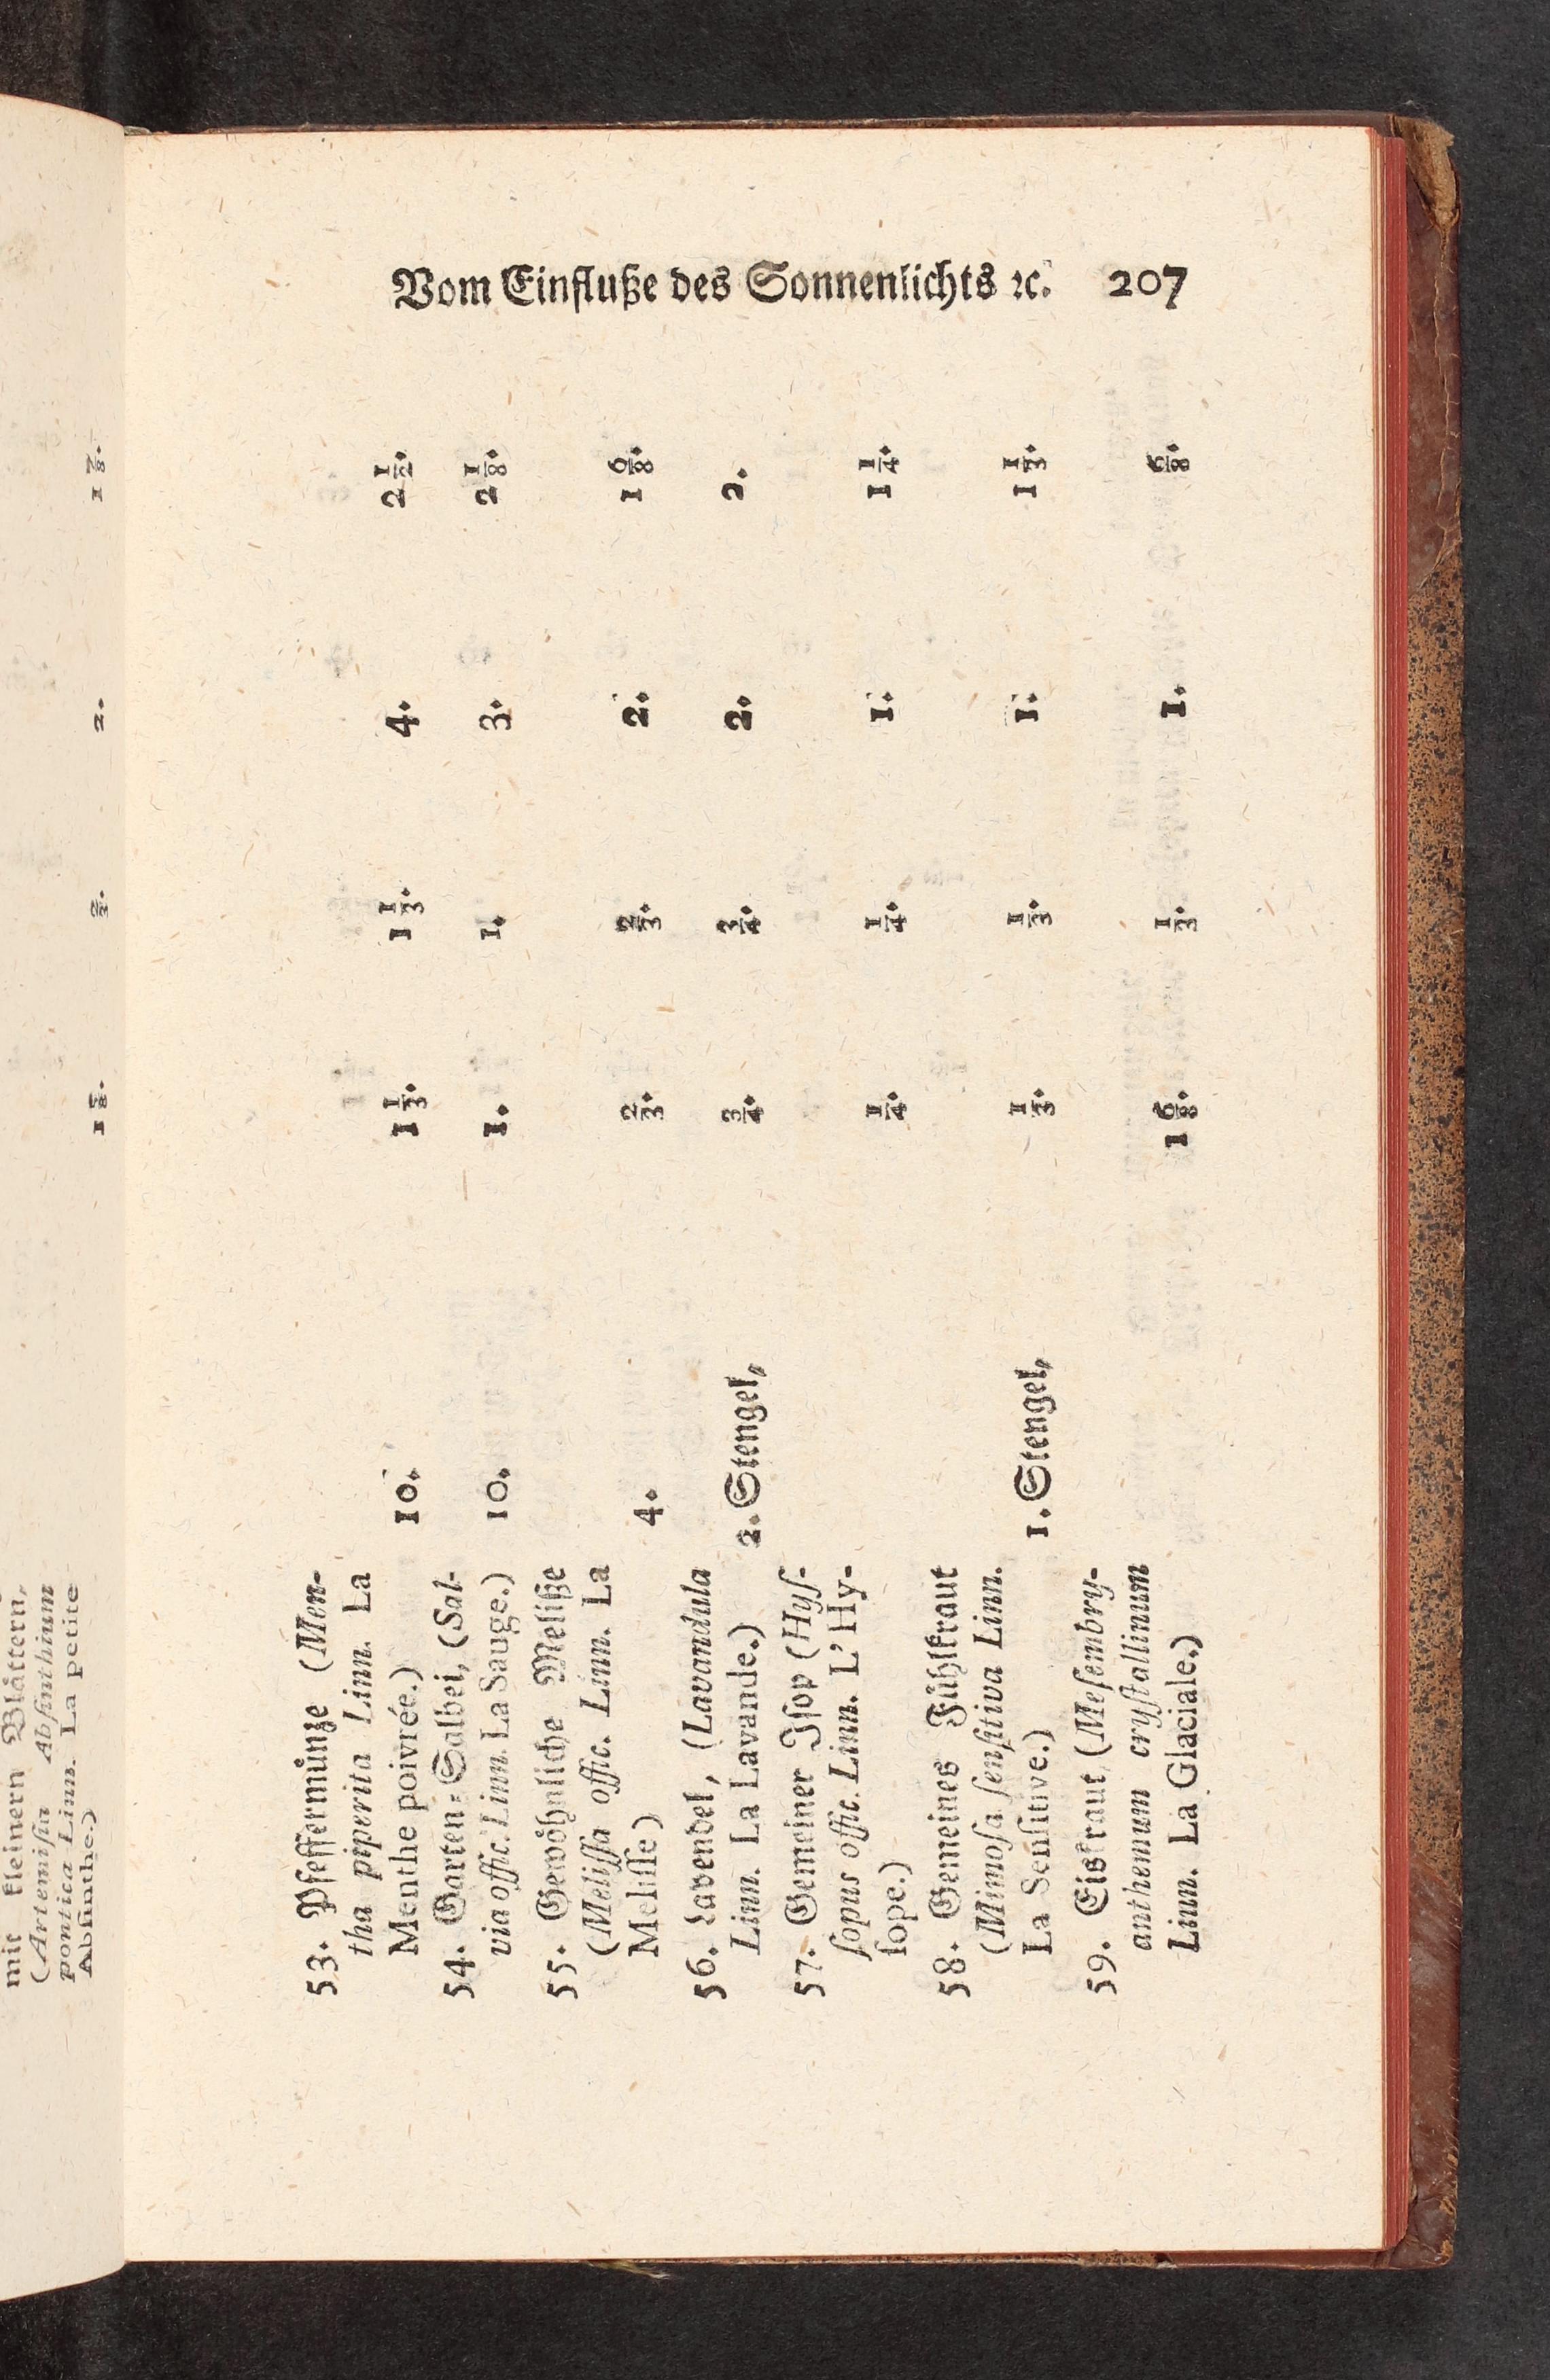 Vom Einfluße des Sonnenlichts ꝛc. 207
mit kleinern Blättern,
(Artemiſia Abſinthium
pontica Linn. La petite
Abſinthe.) 1 5/8. 2/3. 2. 1 7/8.
53. Pfeffermůnze (Men-
tha piperita Linn. La
Menthe poivrée.) 10. 1 1/3. 1 1/3. 4. 2 1/2.
54. Garten-Salbei, (Sal-
via offic. Linn. La Sauge.) 10. 1. 1. 3. 2 1/8.
55. Gewöhnliche Meliße
(Meliſſa offic. Linn. La
Meliſſe) 4. 2/3. 2/3. 2. 1 6/8.
56. Lavendel, (Lavandula
Linn. La Lavande.) 2. Stengel, 3/4. 3/4. 2. 2.
57. Gemeiner Iſop (Hyſ-
ſopus offic. Linn. L' Hy-
ſope.) 1/4. 1/4. 1. 1 1/4.
58. Gemeines Fühlkraut
(Mimoſa ſenſitiva Linn.
La Senſitive.) 1. Stengel, 1/3. 1/3. 1. 1 1/3.
59. Eiskraut (Meſembry-
anthemum cryſtallinum
Linn. La Glaciale.) 1 6/8. 1/3. 1. 6/8.